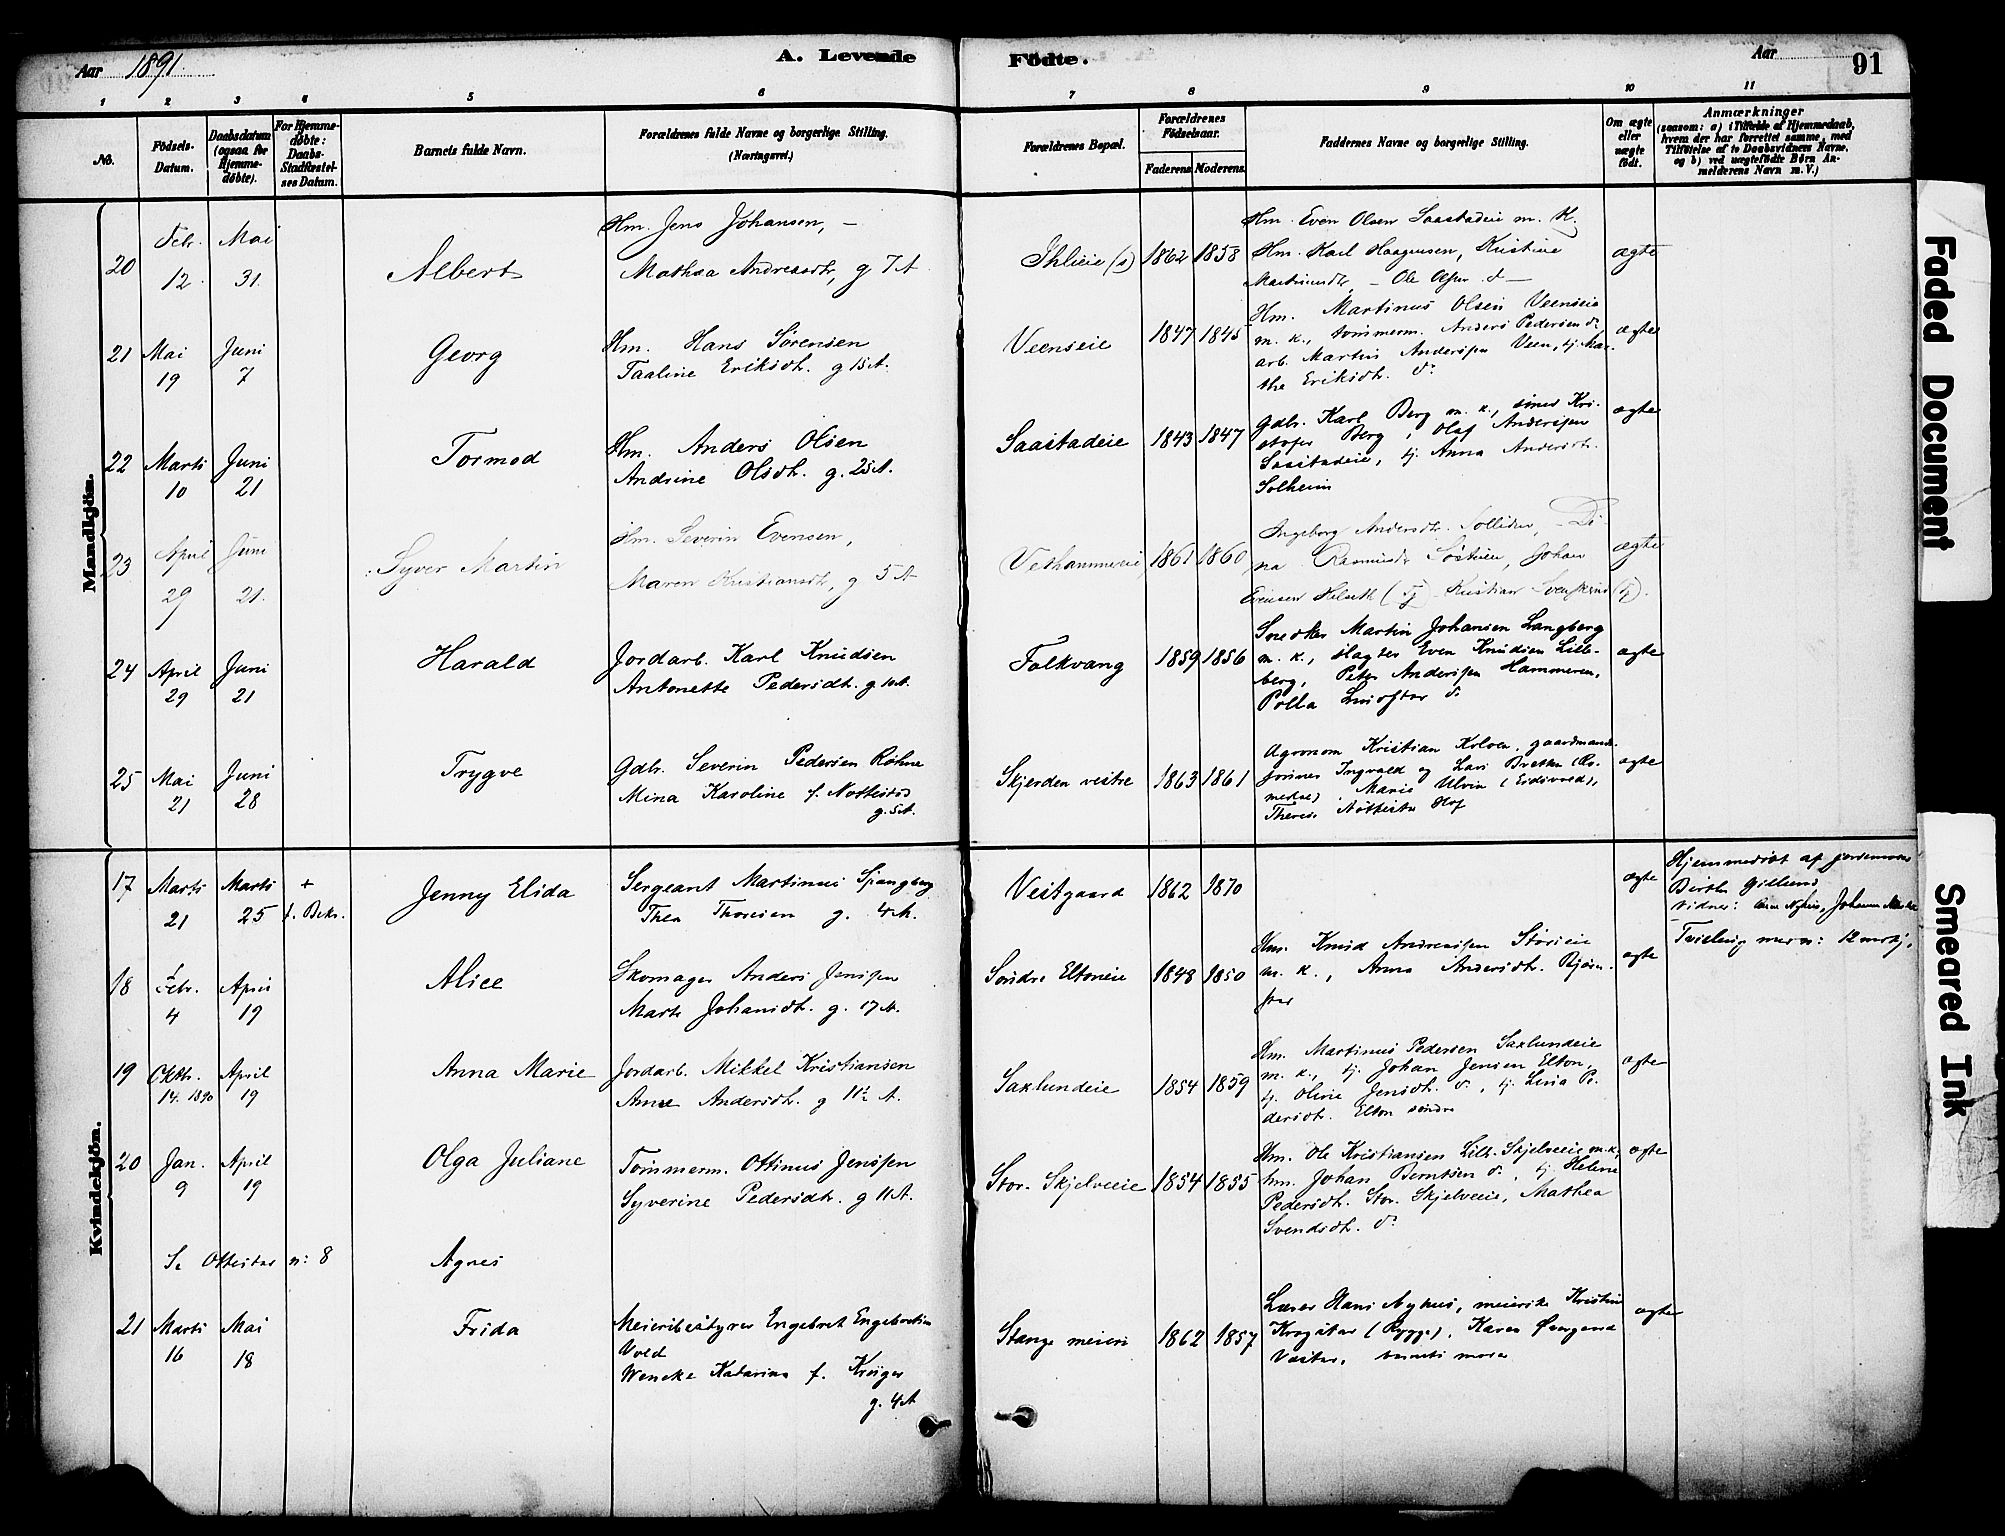 Aar 1891.
A. Levende Fødte.
Aar
91
1 2 3 4 5 6 7 8 9 10 11
No.
Fødsels-Datum.
Daabsdatum (ogsaa for Hjemmedøbte).
For Hjemmedøbte: Daabs-Stadfæstelses Datum.
Barnets fulde Navn.
Forældrenes fulde Navne og borgerlige Stilling.
(Næringsvei.)
Forældrenes Bopæl.
Forældrenes Fødselsaar.
Faderens Moderens
Faddernes Navne og borgerlige Stilling.
Om ægte eller uægte født.
Anmærkninger
(saasom: a) i Tilfælde af Hjemmedaab,
hvem der har forrettet samme, med
Tilføielse af to Daabsvidners Navne,
og b) ved uægtefødte Børn An-
melderens Navn m. V.)
Mandkjøn.
20 Febr. 12. Mai 31. Albert
Hm. Jens Johansen, –
Mathea Andreasdtr, g 7 A
Ihlieie (s) 1862 1858
Hm. Even Olsen Saastadeie m. K.
Hm. Karl Haagensen, Kristine
Martinusdtr, – Ole Olsen d –
ægte
21 Mai 19 Juni 7 Georg
Hm. Hans Sørensen
Taaline Eriksdt. g 15 A.
Veenseie 1847 1845
Hm. Martinus Olsen Veenseie
m. k., tømmerm. Anders Pedersen do
arb. Martin Anderssen Veen, tj. Mar-
the Eriksdt. do
ægte
22 Marts 10 Juni 21 Tormod
Hm. Anders Olsen
Andrine Olsdt. g. 25 A.
Saastadeie 1843 1847
Gdbr. Karl Berg m. k., Kri-
stofer Berg, Olaf Anderssen
Saastadeie, tj. Anna Andersdt.
Solheim
ægte
23 April 29 Juni 21. Syver Martin
Hm. Severin Evensen,
Maren Kristiansdtr, g 5 A
Vesthammerie 1861 1860
Ingeborg Andersdtr. Sollien, – Di-
na Rasmusdtr, Johan
Evensen Helseth (Tj) Kristian (Tj).
ægte
24 April 29 Juni 21 Harald
Jordarb. Karl Knudsen
Antonette Pedersdt. g 10 A.
Folkvang 1859 1856
Snedker Martin Johansen Langberg
m. k., slagter Even Knudsen Lille-
berg, Peter Anderssen Hammeren,
do
ægte
25 Mai 21 Juni 28 Trygve
Gdbr. Severin Pedersen Røhne
Mina Karoline f. Nøttestad
g. 5 A.
Skjerden vestre 1863 1861
Agronom Kristian Kolven, gaardmands-
Ingvald og Lars
Marie Ulvin (Eidsvold),
Therese Hof
ægte
Kvindekjøn.
17 Marts 21 Marts 25 + f. Bekr. Jenny Elida
Sergeant Martinus Spangberg
Thea Thoresen g. 4 A.
Vestgaard 1862 1870
ægte
Hjemmedøbt af jordemoder
Birthe Gillund,
vidner: Johanne
18 Febr. 4 April 19 Alice
Skomager Anders Jenssen
Marte Johansdt. g. 17 A.
Søndre Eltoneie 1848 1850
Hm. Knud Andreassen
m. k., Anna Andersdt. Bjørn-
ægte
Tvilling med n: 12 mkj.
19 Oktbr. 14. 1890 April 19 Anna Marie
Jordarb. Mikkel Kristiansen
Anne Andersdt. g 11½ A.
Saxlundeie 1854 1859
Hm. Martinus Pedersen Saxlundeie
m. k., tj. Johan Jensen Elton,
tj. Oline Jensdt. do, tj. Lina Pe-
dersdt. Elton søndre
ægte
20 Jan. 9 April 19 Olga Juliane
Tømmerm. Ottinus Jenssen
Syverine Pedersdt. g 11 A.
Stor-Skjelveeie 1854 1855
Hm. Ole Kristiansen Lill-Skjelveeie m. k,
hm. Johan Berntsen do, tj. Helene
Pedersdt. Stor-Skjelveeie, Mathea
Svendsdt. do
ægte
Se Ottestad n: 8 Agnes
21 Marts 16 Mai 18 Frida
Meieribestyrer Engebret Engebretsen
Vold
Wencke Katarina f. Krüger
g. 4 A
Stange meieri 1862 1857
Lærer Hans Nyhus, meierske Kristine
(Rygge), Karen
barnets moder
ægte
Faded Document
Smeared Ink